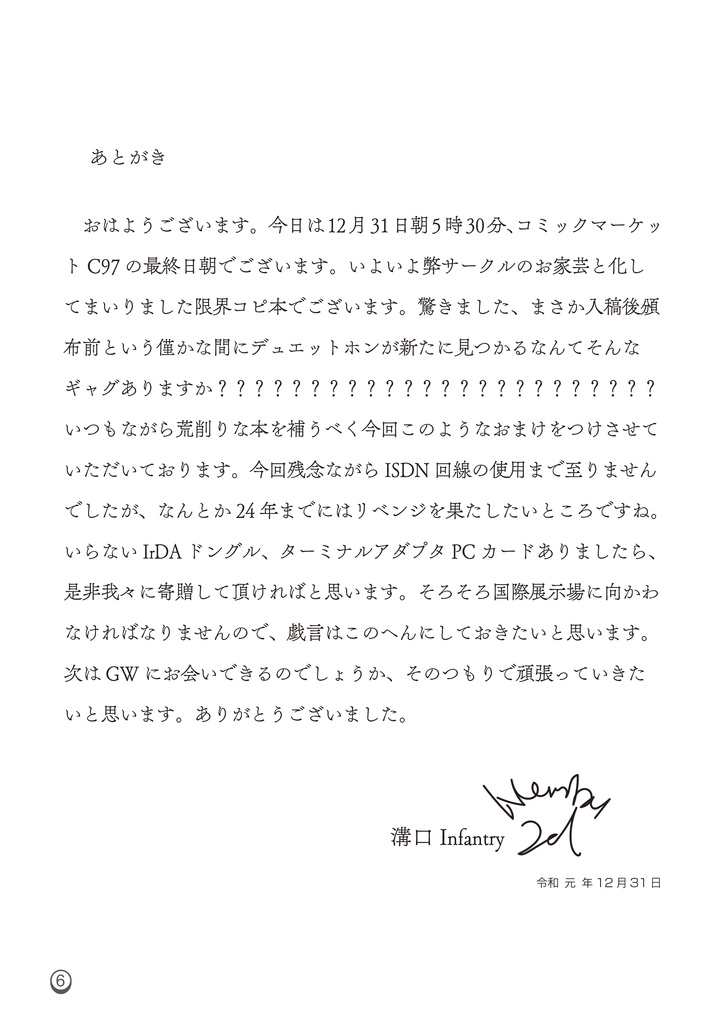 あとがき
おはようございます。今日は12月31日朝5時30分、コミックマーケッ
ト C97 の最終日朝でございます。いよいよ弊サークルのお家芸と化し
てまいりました限界コピ本でございます。驚きました、まさか入稿後頒
布前という僅かな間にデュエットホンが新たに見つかるなんてそんな
ギャグありますか？？？？？？？？？？？？？？？？？？？？？？？？
いつもながら荒削りな本を補うべく今回このようなおまけをつけさせて
いただいております。今回残念ながら ISDN 回線の使用まで至りません
でしたが、なんとか 24 年までにはリベンジを果たしたいところですね。
いらない IrDA ドングル、ターミナルアダプタ PC カードありましたら、
是非我々に寄贈して頂ければと思います。そろそろ国際展示場に向かわ
なければなりませんので、戯言はこのへんにしておきたいと思います。
次は GW にお会いできるのでしょうか、そのつもりで頑張っていきた
いと思います。ありがとうございました。
溝口 Infantry
令和 元 年 12 月 31 日
6